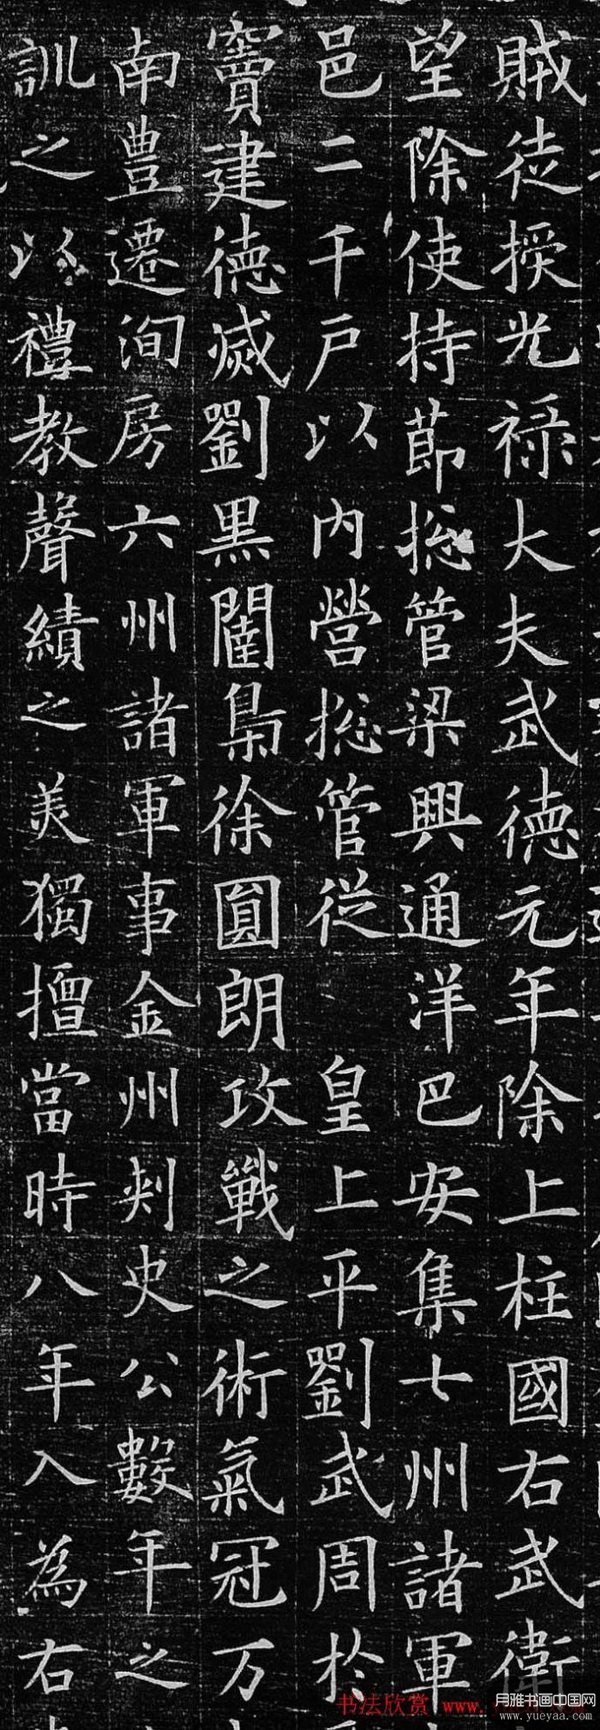 賊徒授光祿大夫武德元年除上柱國右武衛
望除使持節捴管梁興通洋巴安集七州諸軍
邑二千戶以內營捴管從皇上平劉武周於
竇建德滅劉黑闥梟徐圓朗攻戰之術氣冠万
南豊遷洵房六州諸軍事金州刾史公數年之
訓之以禮教聲績之美獨擅當時八年入為右
书法欣赏 www.
月雅书画中国网
www.yueyaa.com